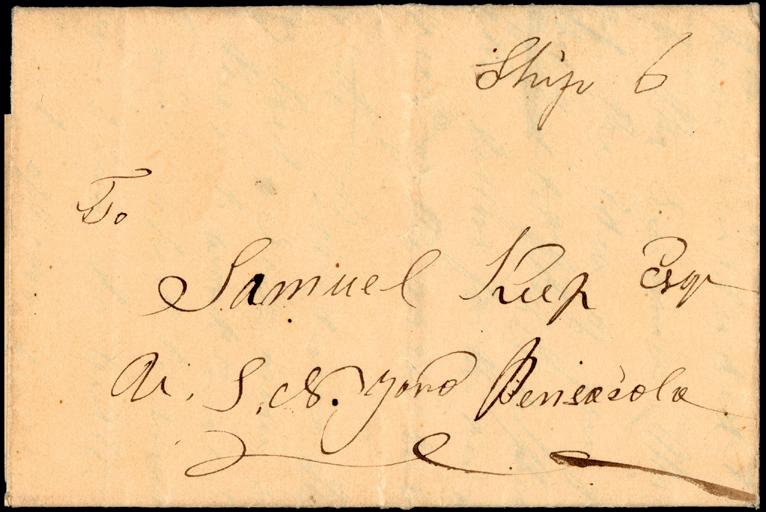 Ship 6
To
Samuel Keep Esqr
U. S. N. Yard Pensacola